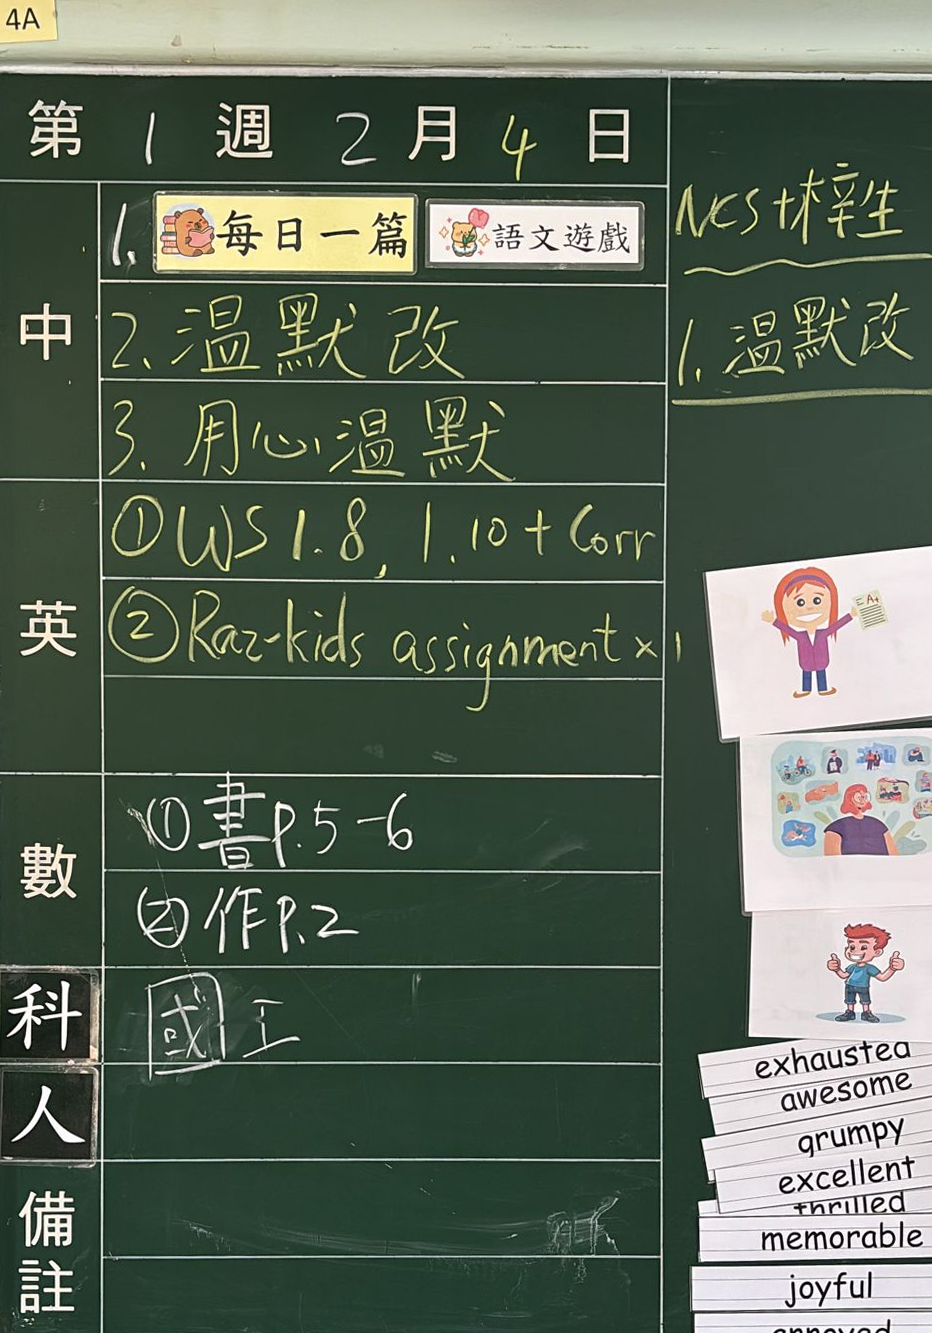 4A
第 1 週 2 月 4 日
中
1. 每日一篇 語文遊戲
2. 溫默改
3. 用心溫默
英
① WS 1.8, 1.10 + Corr
② Raz-kids assignment × 1
數
① 書P.5-6
② 作P.2
科
國 工
人
備註
NCS+梓生
1. 溫默改
A+
exhausted
awesome
grumpy
excellent
thrilled
memorable
joyful
annoyed